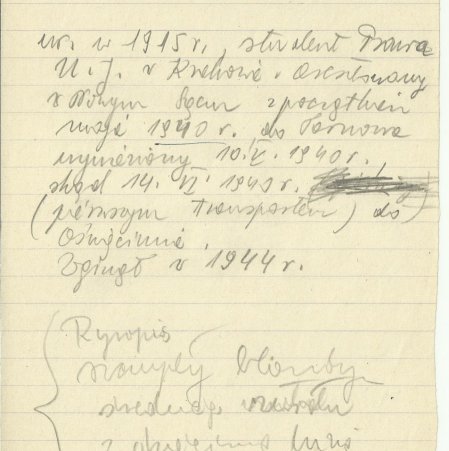 ur. w 1915 r. student Prawa
U.J. w Krakowie. Aresztowany
w Nowym Sączu z początkiem
maja 1940 r. do Tarnowa
wywieziony 10.V. 1940 r.
skąd 14. VI. 1940 r.
(pierwszym transportem) do
Oświęcimia.
Zginął w 1944 r.
Rysopis
szczupły blondyn
średniego wzrostu
z